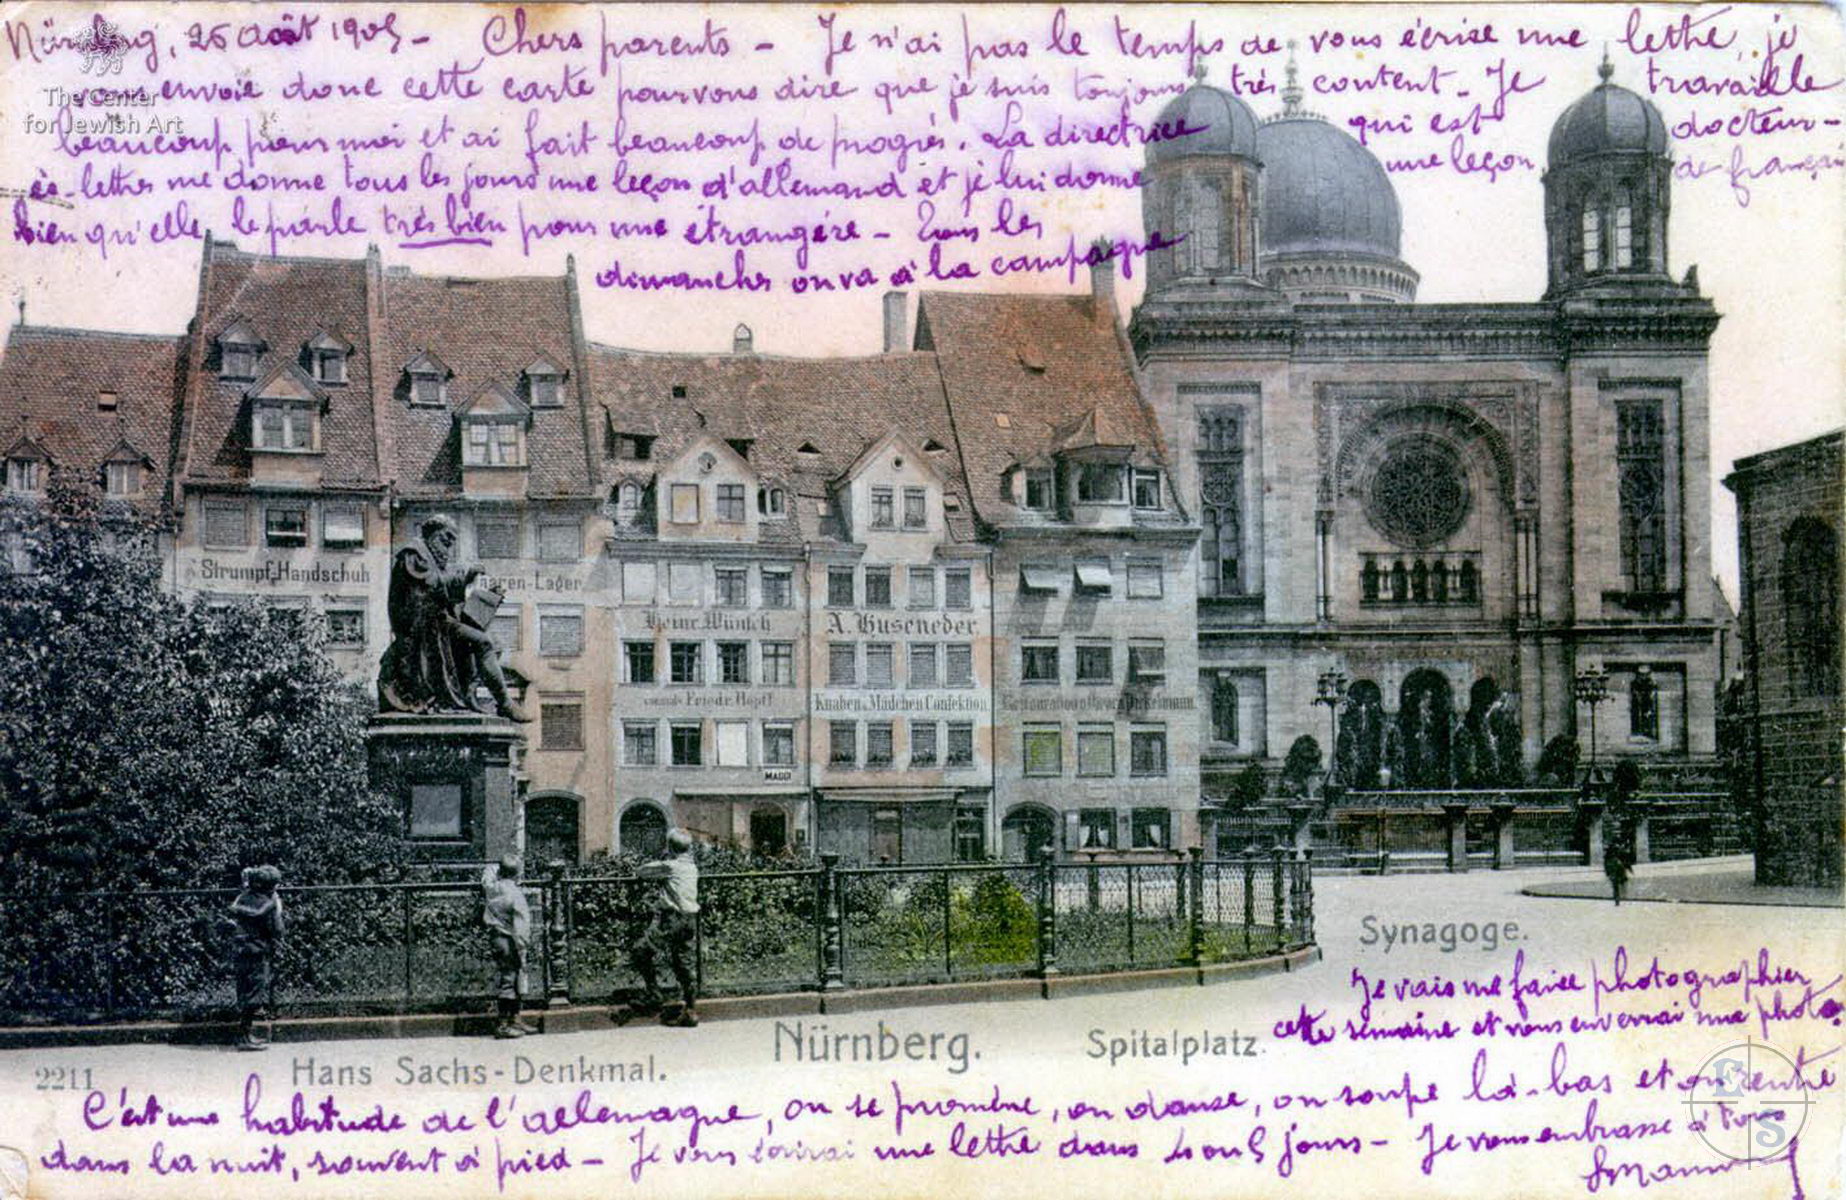 Nürnberg, 25 Août 1905 - Chers parents - Je n'ai pas le temps de vous écrire une lettre, je
vous envoie donc cette carte pour vous dire que je suis toujours très content - Je travaille
The Center
for Jewish Art
beaucoup pour moi et ai fait beaucoup de progrès. La directrice qui est docteur-
ès-lettres me donne tous les jours une leçon d'allemand et je lui donne une leçon de français
bien qu'elle le parle très bien pour une étrangère - Tous les
dimanches on va à la campagne
Strumpf-Handschuh
aaren-Lager
Heinr. Wünsch
A. Huseneder
Friedr. Höpfl
Knaben & Mädchen Confektion
Restauration
MAGGI
Synagoge.
Je vais me faire photographier
cette semaine et vous enverrai une photo
Nürnberg.
Spitalplatz.
Hans Sachs-Denkmal.
2211
E
S
C'est une habitude de l'allemagne, on se promène, on danse, on soupe là-bas et on rentre
dans la nuit, souvent à pied - Je vous écrirai une lettre dans 4 ou 5 jours - Je vous embrasse à tous